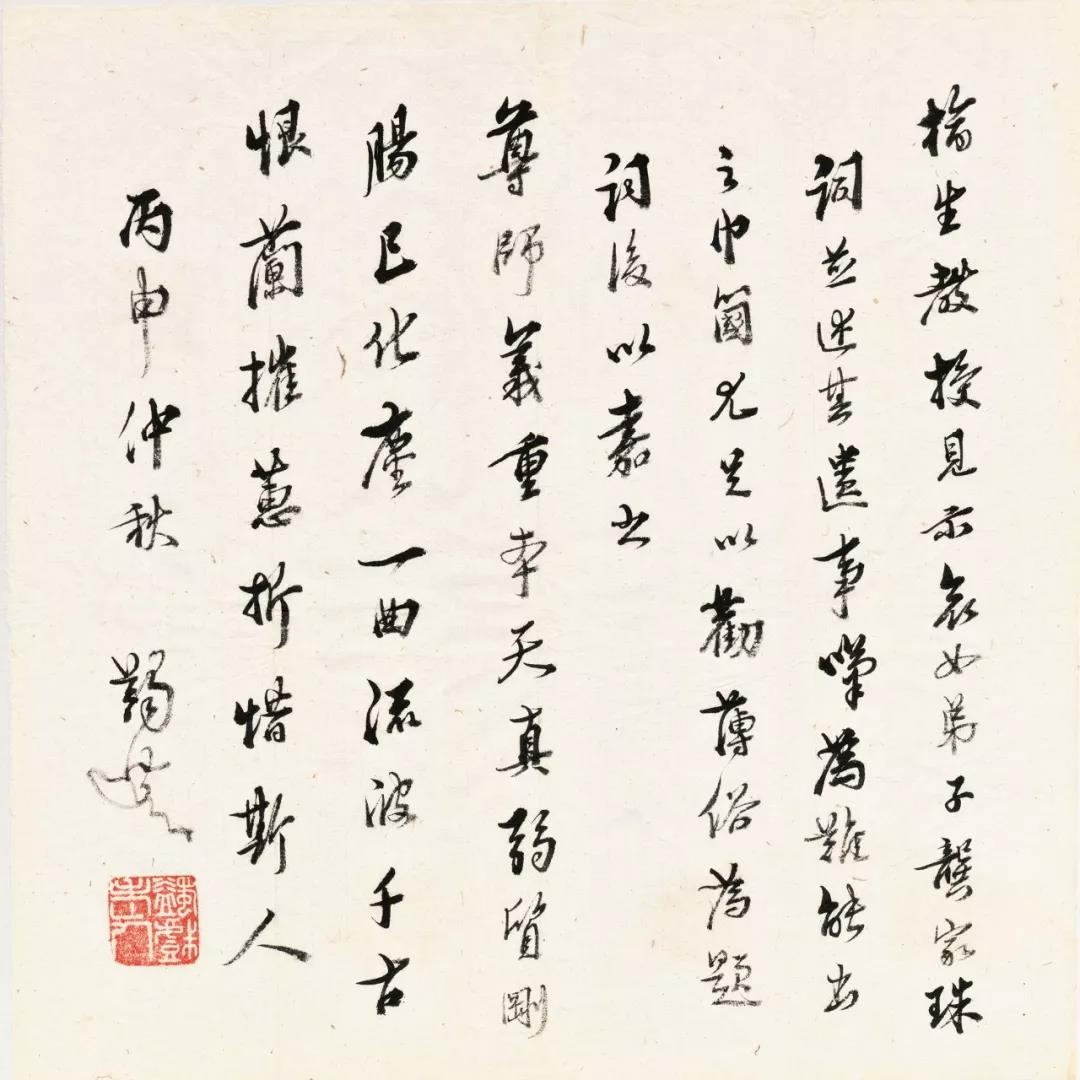 榆生教授見示哀女弟子龔家珠
詞並述其遺事嘆為難能出
之巾幗尤足以勸薄俗為題
詞後以嘉之
尊師義重本天真弱質剛
腸已化塵一曲流波千古
恨蘭摧蕙折惜斯人
丙申仲秋 蠲